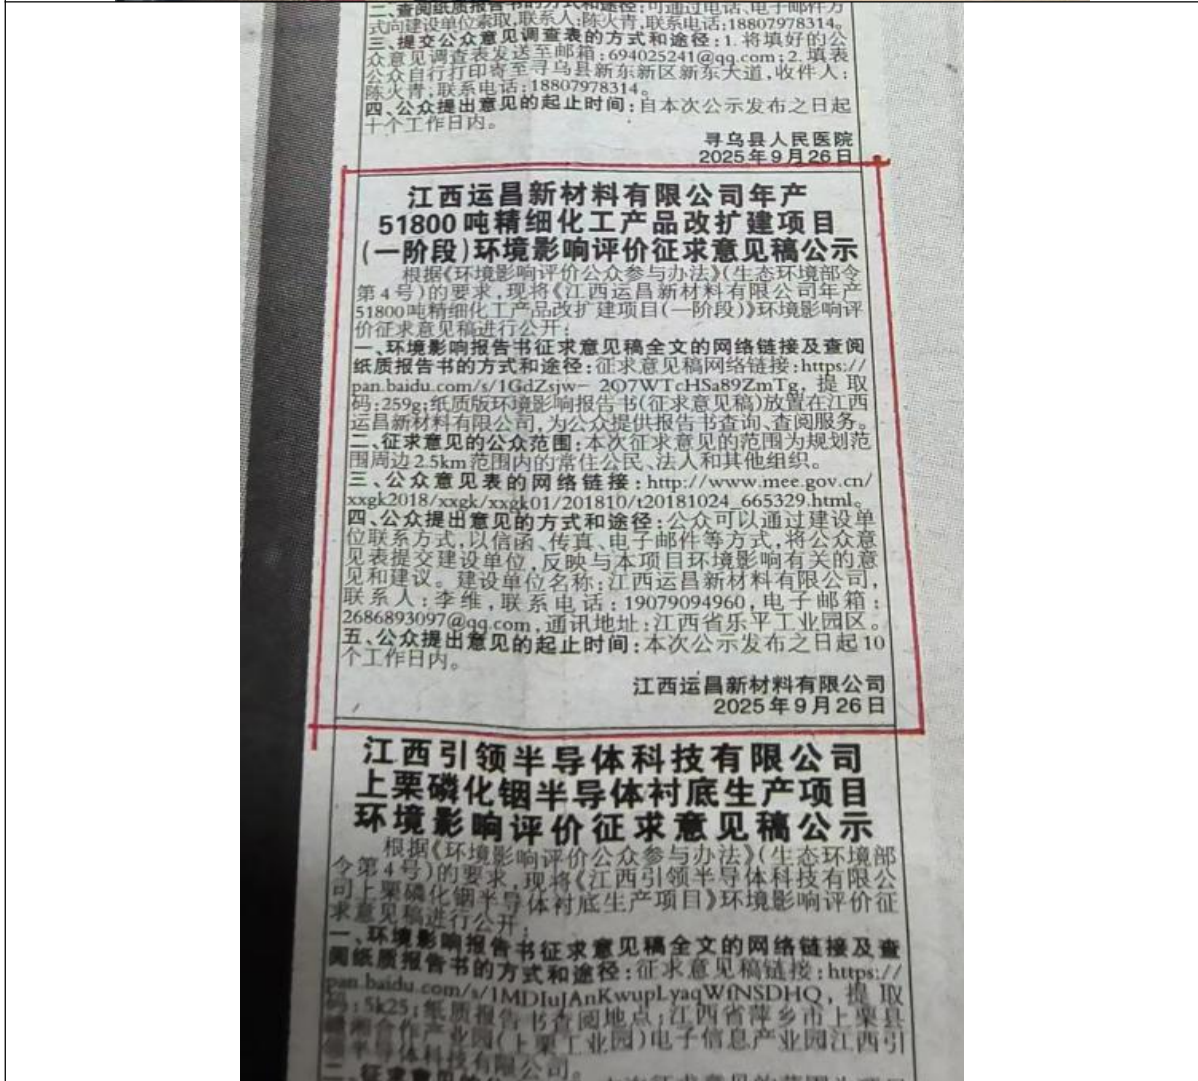 二、查阅纸质报告书的方式和途径:可通过电话、电子邮件方
式向建设单位索取,联系人:陈火青,联系电话:18807978314。
三、提交公众意见调查表的方式和途径:1.将填好的公
众意见调查表发送至邮箱:694025241@qq.com;2.填表
公众自行打印寄至寻乌县新东新区新东大道,收件人:
陈火青,联系电话:18807978314。
四、公众提出意见的起止时间:自本次公示发布之日起
十个工作日内。
寻乌县人民医院
2025年9月26日
江西运昌新材料有限公司年产
51800吨精细化工产品改扩建项目
(一阶段)环境影响评价征求意见稿公示
根据《环境影响评价公众参与办法》(生态环境部令
第4号)的要求,现将《江西运昌新材料有限公司年产
51800吨精细化工产品改扩建项目(一阶段)》环境影响评
价征求意见稿进行公开:
一、环境影响报告书征求意见稿全文的网络链接及查阅
纸质报告书的方式和途径:征求意见稿网络链接:https://
pan.baidu.com/s/1GdZsjw- 2O7WTcHSa89ZmTg,提取
码:259g;纸质版环境影响报告书(征求意见稿)放置在江西
运昌新材料有限公司,为公众提供报告书查询、查阅服务。
二、征求意见的公众范围:本次征求意见的范围为规划范
围周边2.5km范围内的常住公民、法人和其他组织。
三、公众意见表的网络链接:http://www.mee.gov.cn/
xxgk2018/xxgk/xxgk01/201810/t20181024_665329.html。
四、公众提出意见的方式和途径:公众可以通过建设单
位联系方式,以信函、传真、电子邮件等方式,将公众意
见表提交建设单位,反映与本项目环境影响有关的意
见和建议。建设单位名称:江西运昌新材料有限公司,
联系人:李维,联系电话:19079094960,电子邮箱:
2686893097@qq.com,通讯地址:江西省乐平工业园区。
五、公众提出意见的起止时间:本次公示发布之日起10
个工作日内。
江西运昌新材料有限公司
2025年9月26日
江西引领半导体科技有限公司
上栗磷化铟半导体衬底生产项目
环境影响评价征求意见稿公示
根据《环境影响评价公众参与办法》(生态环境部
令第4号)的要求,现将《江西引领半导体科技有限公
司上栗磷化铟半导体衬底生产项目》环境影响评价征
求意见稿进行公开:
一、环境影响报告书征求意见稿全文的网络链接及查
阅纸质报告书的方式和途径:征求意见稿链接:https://
pan.baidu.com/s/1MDIuJAnKwupLyaqWfNSDHQ,提取
码:5k25;纸质报告书查阅地点:江西省萍乡市上栗县
赣湘合作产业园(上栗工业园)电子信息产业园江西引
领半导体科技有限公司。
二、征求意见的